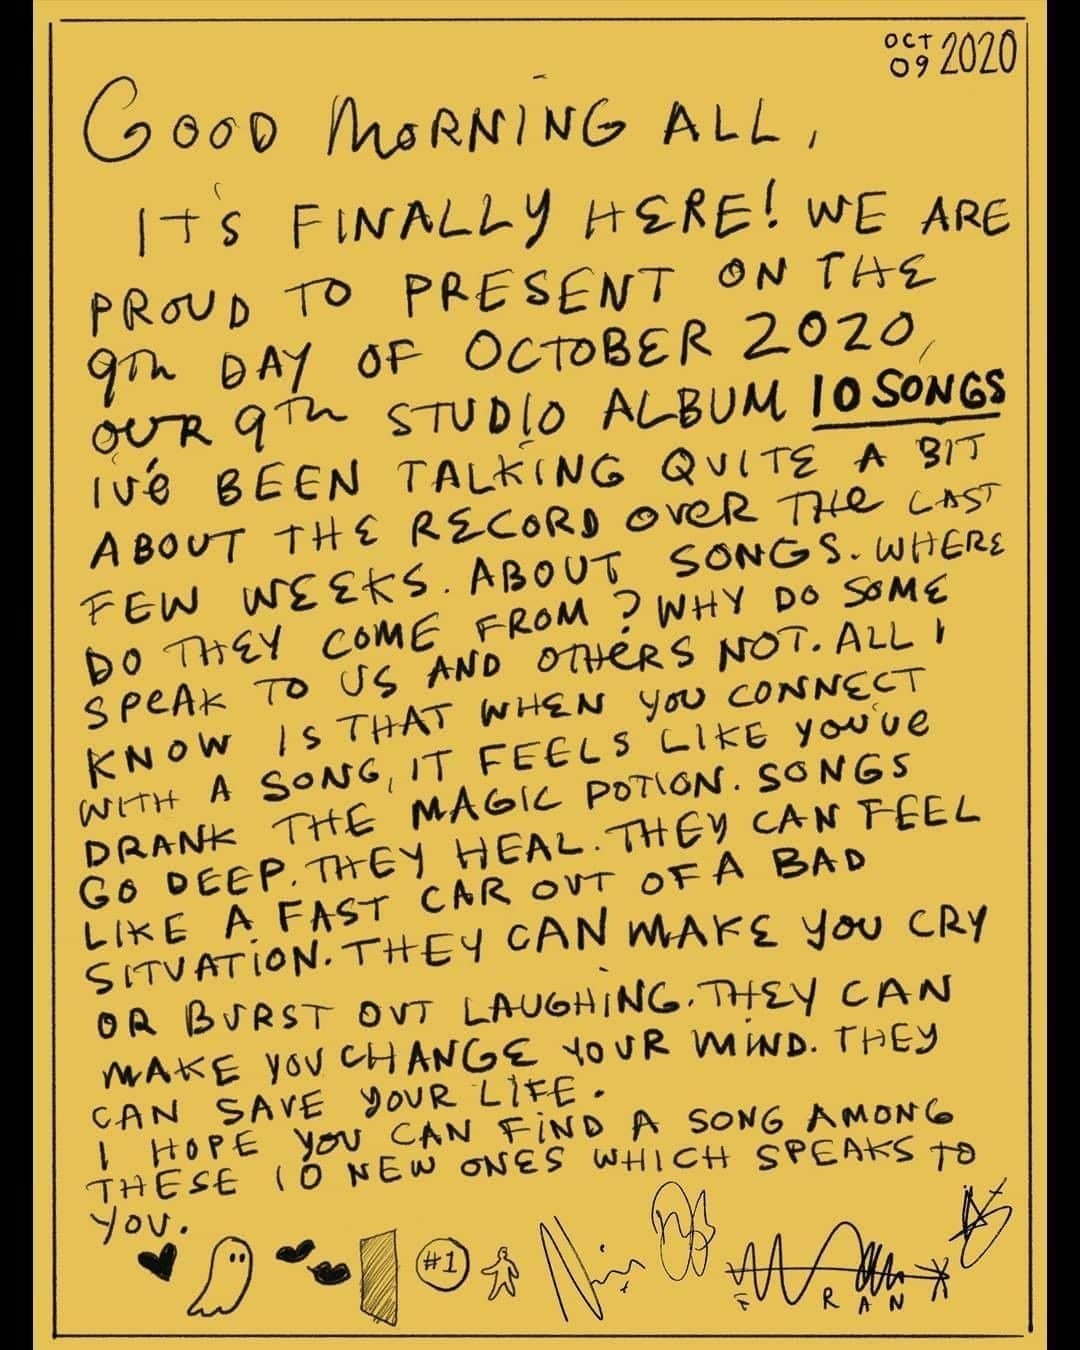 OCT
09 2020
GOOD MORNING ALL,
IT'S FINALLY HERE! WE ARE
PROUD TO PRESENT ON THE
9TH DAY OF OCTOBER 2020,
OUR 9TH STUDIO ALBUM 10 SONGS
I'VE BEEN TALKING QUITE A BIT
ABOUT THE RECORD OVER THE LAST
FEW WEEKS. ABOUT SONGS. WHERE
DO THEY COME FROM? WHY DO SOME
SPEAK TO US AND OTHERS NOT. ALL I
KNOW IS THAT WHEN YOU CONNECT
WITH A SONG, IT FEELS LIKE YOU'VE
DRANK THE MAGIC POTION. SONGS
GO DEEP. THEY HEAL. THEY CAN FEEL
LIKE A FAST CAR OUT OF A BAD
SITUATION. THEY CAN MAKE YOU CRY
OR BURST OUT LAUGHING. THEY CAN
MAKE YOU CHANGE YOUR MIND. THEY
CAN SAVE YOUR LIFE.
I HOPE YOU CAN FIND A SONG AMONG
THESE 10 NEW ONES WHICH SPEAKS TO
YOU.
#1
FRAN